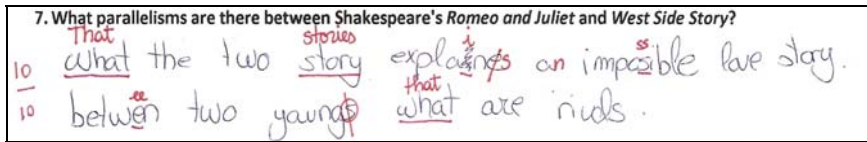 7. What parallelisms are there between Shakespeare's Romeo and Juliet and West Side Story?
That stories i ss
10 what the two story explaings an imposible love story.
ee that
10 betwen two youngs what are rivals.